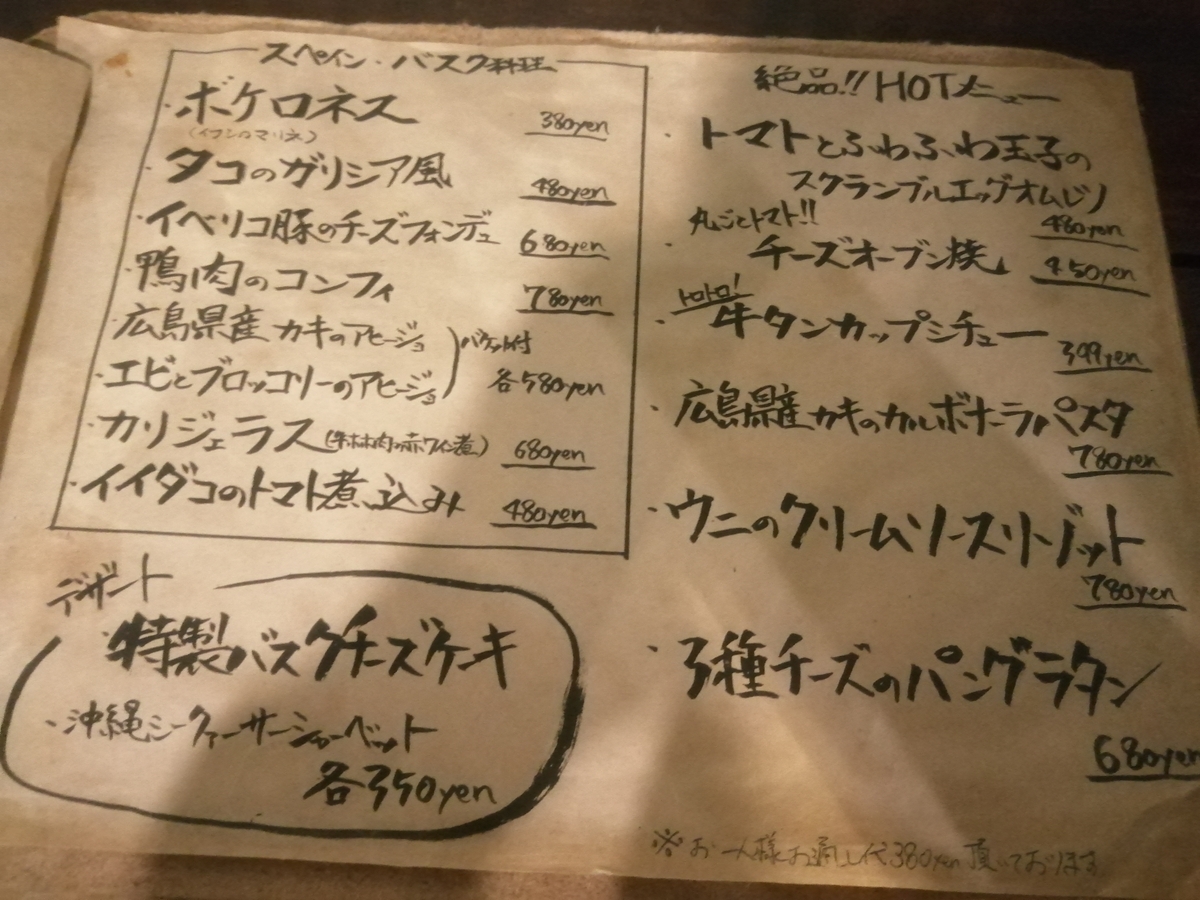 スペイン・バスク料理
・ボケロネス 380yen
(イワシのマリネ)
・タコのガリシア風 480yen
・イベリコ豚のチーズフォンデュ 680yen
・鴨肉のコンフィ 780yen
・広島県産カキのアヒージョ
バケット付
・エビとブロッコリーのアヒージョ 各580yen
・カリジェラス(牛ホホ肉の赤ワイン煮) 680yen
・イイダコのトマト煮込み 480yen
デザート
・特製バスクチーズケーキ
・沖縄シークァーサーシャーベット
各350yen
絶品!!HOTメニュー
・トマトとふわふわ玉子の
スクランブルエッグオムレツ
480yen
丸ごとトマト!!
・チーズオーブン焼 450yen
トロトロ!
・牛タンカップシチュー
399yen
・広島県産カキのカルボナーラパスタ
780yen
・ウニのクリームソースリゾット
780yen
・3種チーズのパングラタン
680yen
※お一人様お通し代380yen頂いております